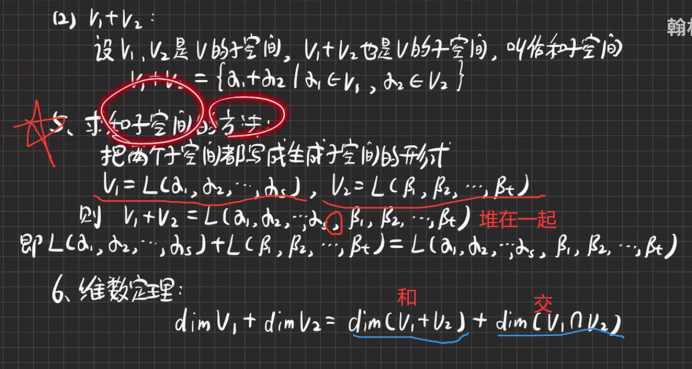 (2) V₁+V₂:
翰林
设V₁,V₂是V的子空间, V₁+V₂也是V的子空间, 叫作和子空间
V₁+V₂={α₁+α₂|α₁∈V₁, α₂∈V₂}
5、求和子空间的方法:
把两个子空间都写成生成子空间的形式
V₁=L(α₁,α₂,…,αₛ), V₂=L(β₁,β₂,…,βₜ)
则 V₁+V₂=L(α₁,α₂,…,αₛ,β₁,β₂,…,βₜ) 堆在一起
即L(α₁,α₂,…,αₛ)+L(β₁,β₂,…,βₜ)=L(α₁,α₂,…,αₛ,β₁,β₂,…,βₜ)
6、维数定理:
和 交
dimV₁+dimV₂=dim(V₁+V₂)+dim(V₁∩V₂)